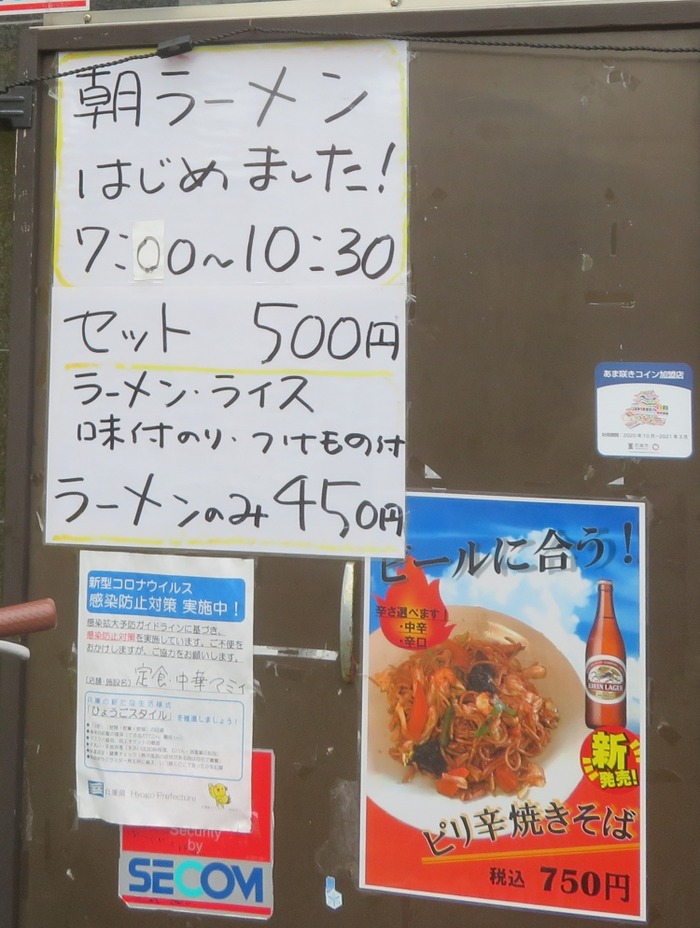 朝ラーメン
はじめました!
7:00~10:30
セット 500円
ラーメン・ライス
味付のり・つけもの付
ラーメンのみ 450円
あま咲きコイン加盟店
新型コロナウイルス
感染防止対策 実施中!
感染拡大予防ガイドラインに基づき、
感染防止対策を実施しています。ご不便を
おかけしますが、ご協力をお願いします。
(店舗・施設名) 定食・中華アミィ
兵庫の新たな生活様式
「ひょうごスタイル」を推進しましょう!
兵庫県 Hyogo Prefecture
Security
by
SECOM
ビールに合う!
辛さ選べます!
・中辛
・辛口
KIRIN LAGER
新
発売!
ピリ辛焼きそば
税込 750円